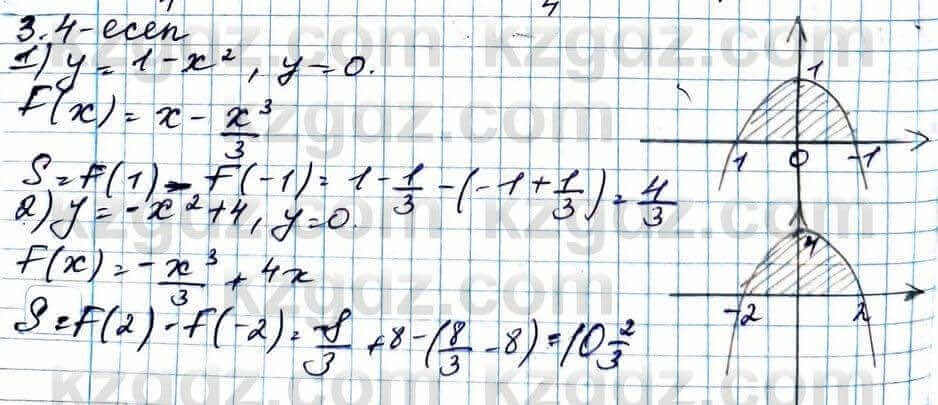 3.4-есеп
1) y = 1 - x², y = 0.
F(x) = x - x³/3
S = F(1) - F(-1) = 1 - 1/3 - (-1 + 1/3) = 4/3
2) y = -x² + 4, y = 0.
F(x) = -x³/3 + 4x
S = F(2) - F(-2) = -8/3 + 8 - (8/3 - 8) = 10 2/3
1
1 0 -1
4
-2 2
kzgdz.com